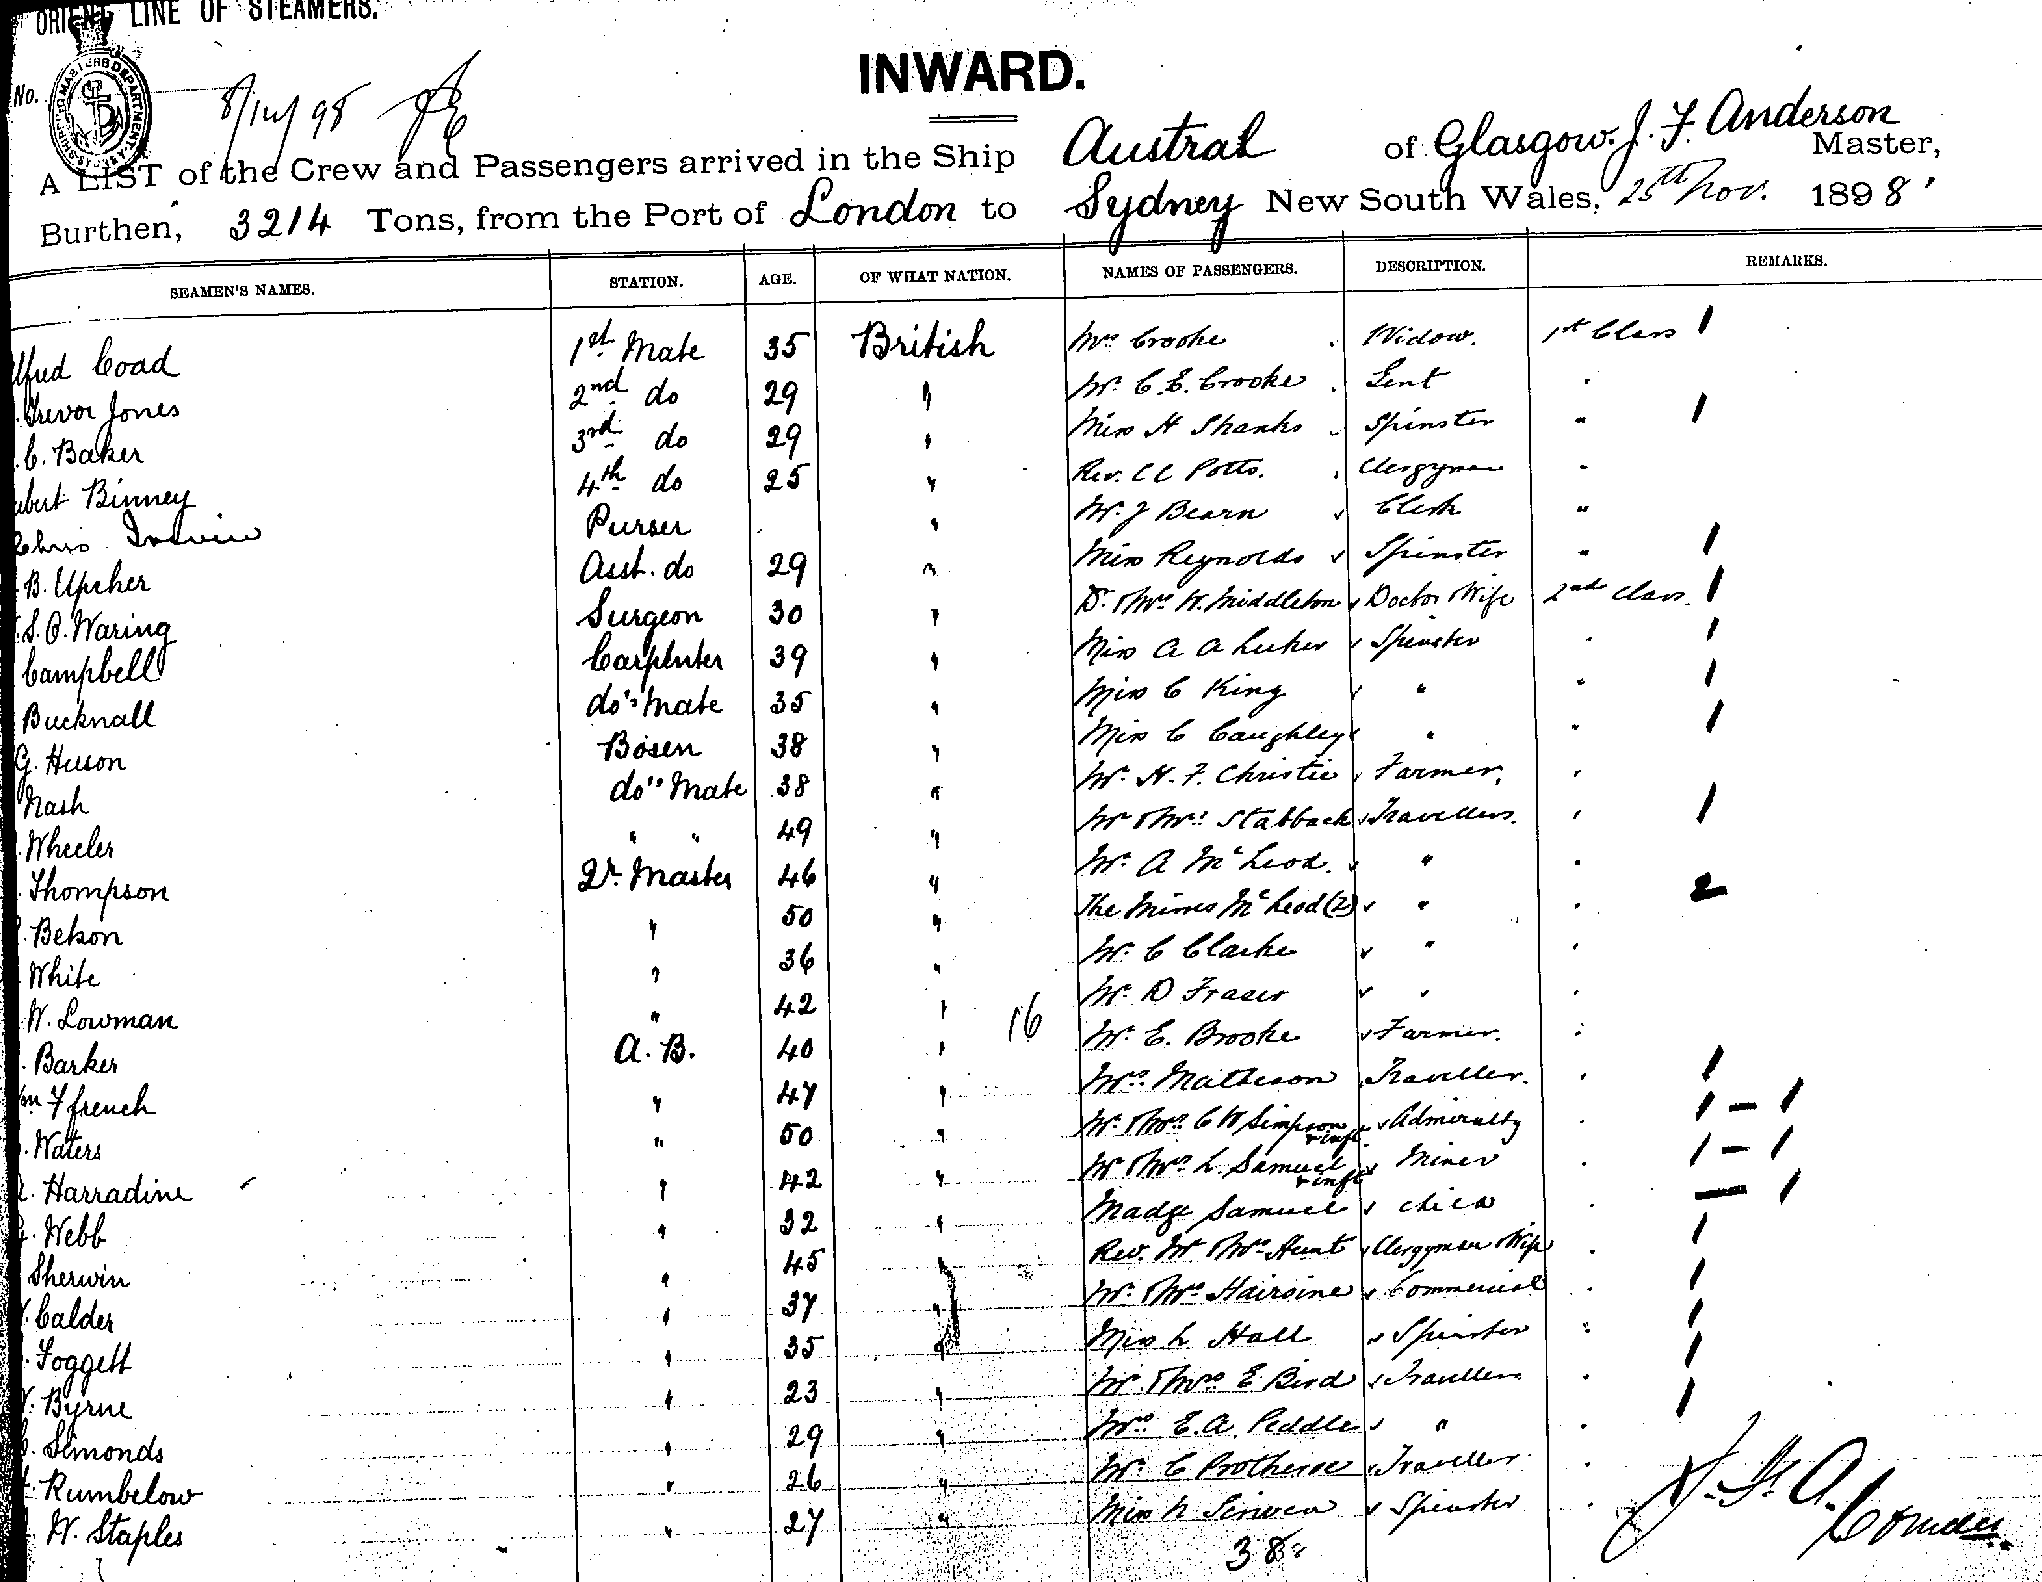 ORIENT LINE OF STEAMERS.
INWARD.
No.
SHIPPING MASTERS DEPARTMENT
98
A LIST of the Crew and Passengers arrived in the Ship Austral of Glasgow. J. F. Anderson Master,
Burthen, 3214 Tons, from the Port of London to Sydney New South Wales, 25th Nov. 1898
SEAMEN'S NAMES. STATION. AGE. OF WHAT NATION. NAMES OF PASSENGERS. DESCRIPTION. REMARKS.
lfred Coad 1st Mate 35 British Mrs Crooke Widow. 1st Class 1
Trevor Jones 2nd do 29 " Mr. C. E. Crooke Gent "
C. Baker 3rd do 29 " Miss H Shanks Spinster " 1
ubert Binney 4th do 25 " Rev. CC Potts. Clergyman "
Chris Purser " Mr. J Bearn Clerk "
B. Upcher Asst. do 29 " Miss Reynolds Spinster " 1
S. P. Waring Surgeon 30 " Dr. & Mrs W. Middleton Doctor & Wife 2nd Class. 1
Campbell Carpenter 39 " Miss A A Luker Spinster " 1
Bucknall do's Mate 35 " Miss C King " " 1
G. Huson Bosen 38 " Miss C Caughley " " 1
Nash do's Mate 38 " Mr. H. F. Christie Farmer, "
Wheeler " " 49 " Mr & Mrs Stabback Travellers. " 1
Thompson Qr. Master 46 " Mr. A McLeod. " "
Betson " 50 " The Misses McLeod (2) " " 2
White " 36 " Mr. C Clarke " "
W. Lowman " 42 " Mr. D Fraser " "
16
Barker A. B. 40 " Mr. E. Brooke Farmer. "
Ffrench " 47 " Mrs. Matheson Traveller. " 1
Waters " 50 " Mr. & Mrs. C W Simpson & inft. Admiralty " 1 - 1
Harradine " 42 " Mr & Mrs. L. Samuel & inft Miner " 1 - 1
Webb " 32 " Madge Samuel child " - 1
Sherwin " 45 " Rev. Mr & Mrs Hunt Clergyman & Wife " 1
Calder " 37 " Mr. & Mrs Hairsine Commercial " 1
Foggett " 35 " Miss L Hall Spinster " 1
Byrne " 23 " Mr. & Mrs E Bird Travellers " 1
Simonds " 29 " Mrs E. A. Peddle " " 1
Rumbelow " 26 " Mr. C Protheroe Traveller "
W. Staples " 27 " Miss N Spinster "
38